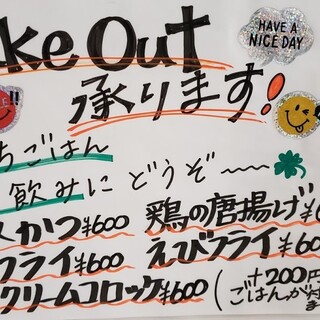 HAVE A
NICE DAY
ke Out
承ります!
ちごはん
飲みに どうぞ〜
かつ¥600 鶏の唐揚げ¥
フライ¥600 えびフライ¥6
クリームコロッケ¥600 (+200円
ごはんが付